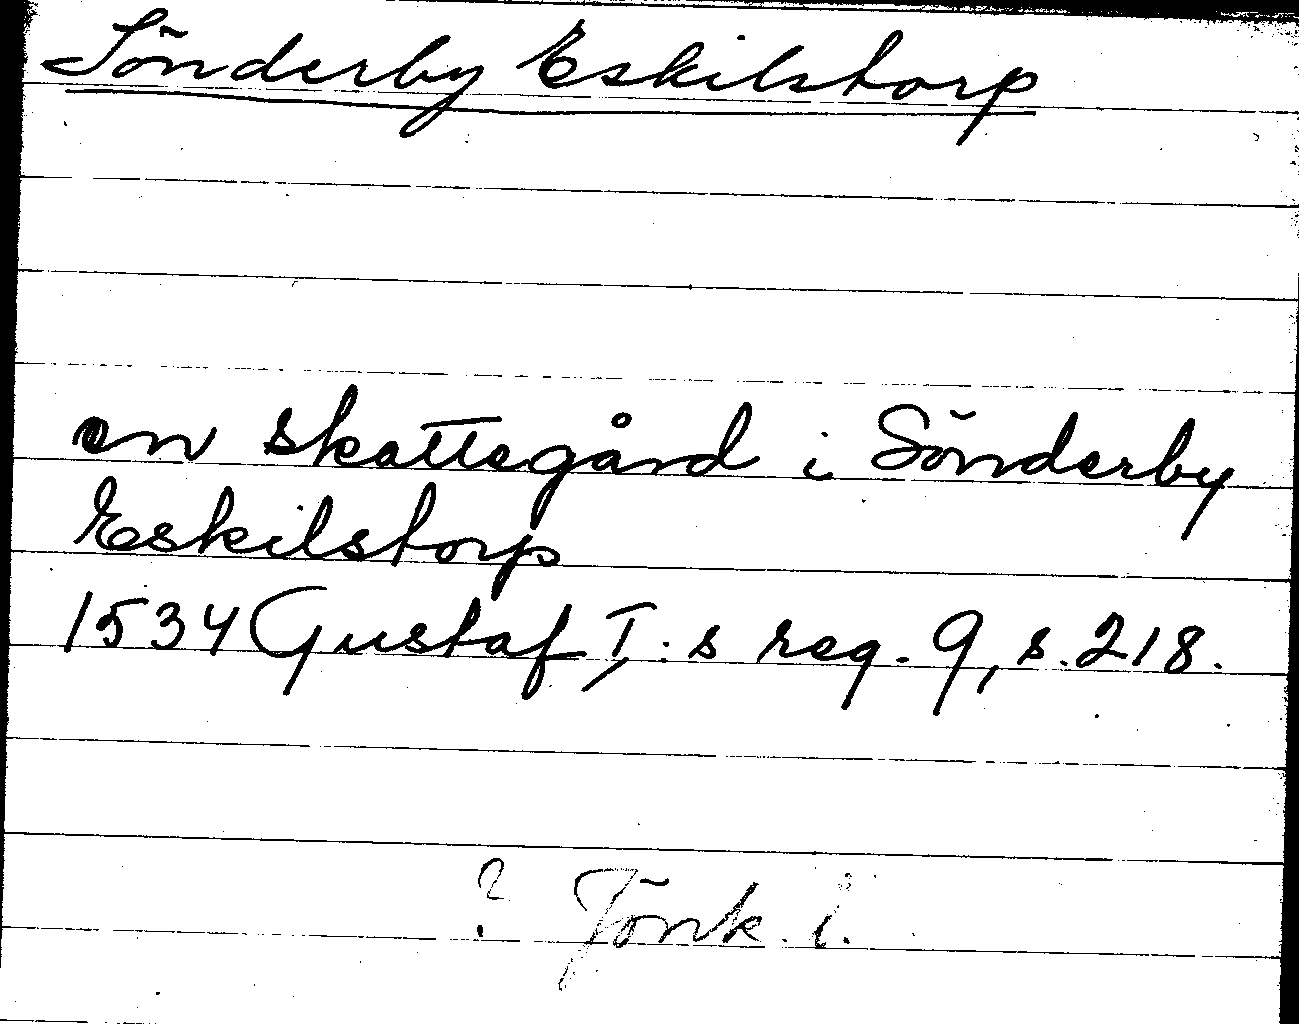 Sönderby Eskilstorp
en skattegård i Sönderby
Eskilstorp
1534 Gustaf I:s reg. 9, s. 218.
? Jönk. l.